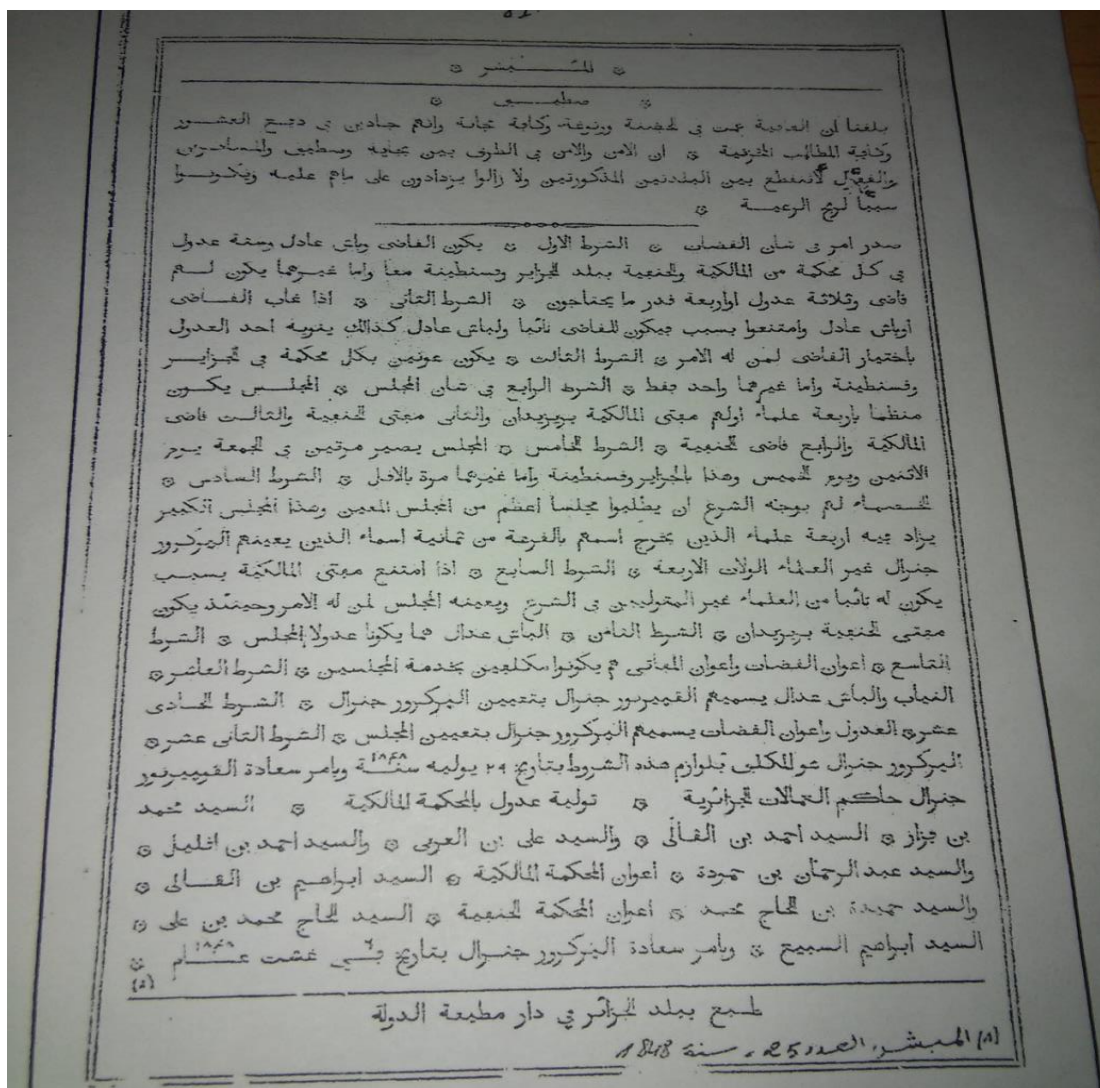 ۞ المبشر ۞
۞ سطيف ۞
بلغنا ان العافية عمت في لحضنة وريغة وكافة عجانة وانهم جادين في دفع العشور
وكافة المطالب المخزنية ۞ ان الامن والامن في الطرق بين بجاية وسطيف والمسافرين
لا تنقطع بين البلدتين المذكورتين ولا زالوا يزدادون على ماهم عليه ويكونوا
سببا لربح الرعية ۞
صدر امر في شان القضات ۞ الشرط الاول ۞ يكون القاضى وباش عادل وستة عدول
في كل محكمة من المالكية والحنفية ببلد الجزاير وقسنطينة معا واما غيرهما يكون لهم
قاضى وثلاثة عدول اواربعة قدر ما يحتاجون ۞ الشرط الثانى ۞ اذا غاب القاضى
اوباش عادل وامتنعوا بسبب فيكون للقاضى نائبا ولباش عادل كذالك ينوبه احد العدول
باختيار القاضى لمن له الامر ۞ الشرط الثالث ۞ يكون عونين بكل محكمة في لجزاير
وقسنطينة واما غيرهما واحد فقط ۞ الشرط الرابع في شان المجلس ۞ المجلس يكون
منظما باربعة علماء اولهم مفتى المالكية بريزيدان والثانى مفتى لحنفية والثالث قاضى
المالكية والرابع قاضى لحنفية ۞ الشرط لخامس ۞ المجلس يصير مرتين في لجمعة يوم
الاثنين ويوم لخميس وهذا بالجزاير وقسنطينة واما غيرهما مرة بالاقل ۞ الشرط السادس ۞
لخصماء لهم بوجه الشرع ان يطلبوا مجلسا اعظم من المجلس المعين وهذا المجلس الكبير
يزاد فيه اربعة علماء الذين يخرج اسمهم بالقرعة من ثمانية اسماء الذين يعينهم البركرور
جنرال غير العلماء الولات الاربعة ۞ الشرط السابع ۞ اذا امتنع مفتى المالكية بسبب
يكون له نائبا من العلماء غير المتوليين في الشرع ويعينه المجلس لمن له الامر وحينئذ يكون
مفتى لحنفية بريزيدان ۞ الشرط الثامن ۞ الباش عدال هما يكونا عدولا المجلس ۞ الشرط
التاسع ۞ اعوان القضات واعوان المفاتى هم يكونوا مكلفين بخدمة المجلسين ۞ الشرط العاشر ۞
النياب والباش عدال يسميهم القبيرنور جنرال بتعيين البركرور جنرال ۞ الشرط لحادى
عشر ۞ العدول واعوان القضات يسميهم البركرور جنرال بتعيين المجلس ۞ الشرط الثانى عشر ۞
البركرور جنرال هو المكلف بلوازم هذه الشروط بتاريخ ٢٩ يوليه سنة ١٨٤٨ وبامر سعادة القوبيرنور
جنرال حاكم العمالات لجزائرية ۞ تولية عدول بالمحكمة المالكية ۞ السيد محمد
بن قزاز ۞ السيد احمد بن القالى ۞ والسيد على بن العربى ۞ والسيد احمد بن اخليل ۞
والسيد عبد الرحمان بن حمودة ۞ اعوان المحكمة المالكية ۞ السيد ابراهيم بن القالى ۞
والسيد حميدة بن لحاج محمد ۞ اعوان المحكمة لحنفية ۞ السيد لحاج محمد بن على ۞
السيد ابراهيم السبيع ۞ وبامر سعادة البركرور جنرال بتاريخ غشت عام ١٨٤٨ ۞
طبع ببلد لجزائر في دار مطبعة الدولة
(١) المبشر، العدد 25، سنة 1848